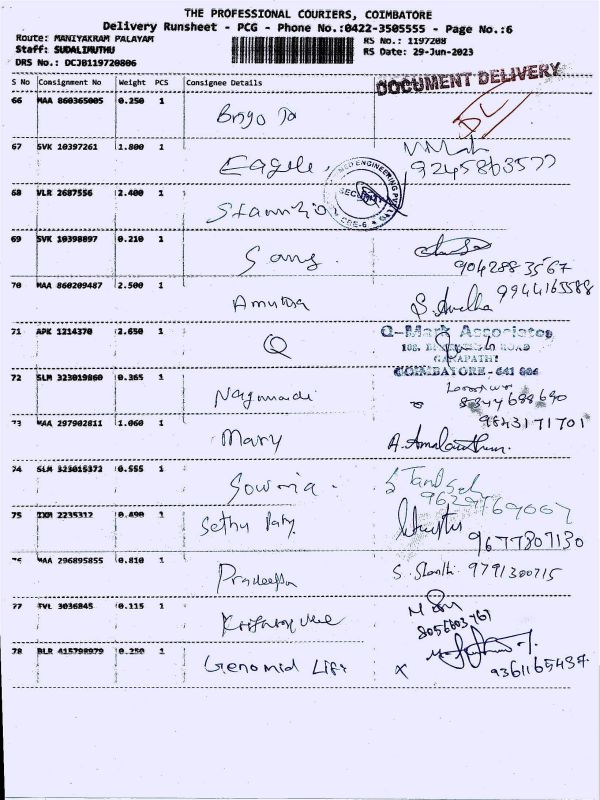 THE PROFESSIONAL COURIERS, COIMBATORE
Delivery Runsheet - PCG - Phone No.:0422-3505555 - Page No.:6
Route: MANIYAKRAM PALAYAM
RS No.: 1197208
Staff: SUDALIMUTHU
RS Date: 29-Jun-2023
DRS No.: DCJ0119720806
S No Consignment No Weight PCS Consignee Details
DOCUMENT DELIVERY
DL
66 MAA 860365005 0.250 1
67 SVK 10397261 1.800 1 Eagle
9245863577
68 VLR 2687556 2.400 1
ENGINEERING PVT LTD
SECURITY
CBE-6
69 SVK 10398897 0.210 1
9042883567
70 MAA 860209487 2.500 1 Amutha
9944165588
71 APK 1214370 2.650 1 Q
Q-Mark Associates
108, ROAD
GANAPATHY
COIMBATORE - 641 006
72 SLM 323019860 0.365 1
8344688690
73 MAA 297902811 1.060 1 Mary
9843171701
74 SLM 323015372 0.555 1 Sowmia
75 IXM 2235312 0.490 1 Sethu
9677807130
76 MAA 296895855 0.810 1 Pradeepa S. Shanthi 9791300715
77 TVL 3036845 0.115 1
8056603767
78 BLR 415798979 0.250 1 Genomid Life x
9361165437